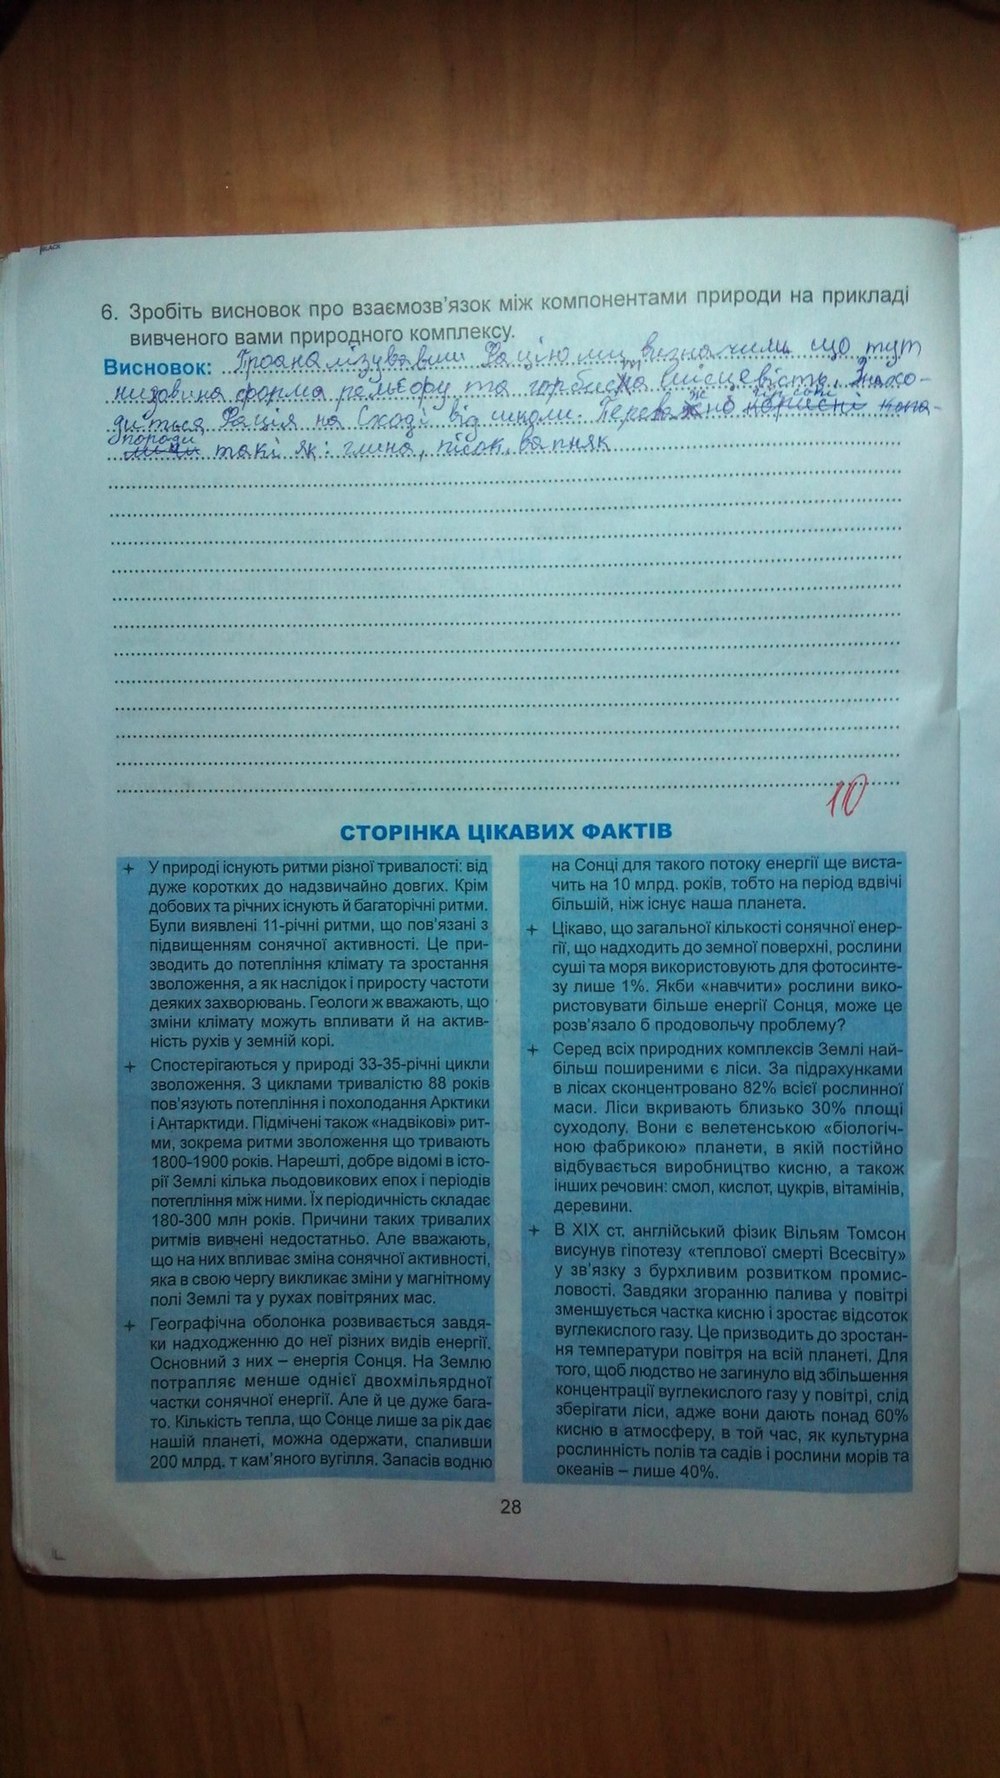 6. Зробіть висновок про взаємозв’язок між компонентами природи на прикладі
вивченого вами природного комплексу.
Висновок: Проаналізувавши Фацію ми визначили що тут
низовина форма рельєфу та горбиста місцевість. Знахо-
диться Фація на Сході від школи. Переважно гірські
породи такі як: глина, пісок, вапняк
10
СТОРІНКА ЦІКАВИХ ФАКТІВ
У природі існують ритми різної тривалості: від
дуже коротких до надзвичайно довгих. Крім
добових та річних існують й багаторічні ритми.
Були виявлені 11-річні ритми, що пов’язані з
підвищенням сонячної активності. Це при-
зводить до потепління клімату та зростання
зволоження, а як наслідок і приросту частоти
деяких захворювань. Геологи ж вважають, що
зміни клімату можуть впливати й на актив-
ність рухів у земній корі.
Спостерігаються у природі 33-35-річні цикли
зволоження. З циклами тривалістю 88 років
пов’язують потепління і похолодання Арктики
і Антарктиди. Підмічені також «надвікові» рит-
ми, зокрема ритми зволоження що тривають
1800-1900 років. Нарешті, добре відомі в істо-
рії Землі кілька льодовикових епох і періодів
потепління між ними. Їх періодичність складає
180-300 млн років. Причини таких тривалих
ритмів вивчені недостатньо. Але вважають,
що на них впливає зміна сонячної активності,
яка в свою чергу викликає зміни у магнітному
полі Землі та у рухах повітряних мас.
Географічна оболонка розвивається завдя-
ки надходженню до неї різних видів енергії.
Основний з них – енергія Сонця. На Землю
потрапляє менше однієї двохмільярдної
частки сонячної енергії. Але й це дуже бага-
то. Кількість тепла, що Сонце лише за рік дає
нашій планеті, можна одержати, спаливши
200 млрд. т кам’яного вугілля. Запасів водню
на Сонці для такого потоку енергії ще виста-
чить на 10 млрд. років, тобто на період вдвічі
більший, ніж існує наша планета.
Цікаво, що загальної кількості сонячної енер-
гії, що надходить до земної поверхні, рослини
суші та моря використовують для фотосинте-
зу лише 1%. Якби «навчити» рослини вико-
ристовувати більше енергії Сонця, може це
розв’язало б продовольчу проблему?
Серед всіх природних комплексів Землі най-
більш поширеними є ліси. За підрахунками
в лісах сконцентровано 82% всієї рослинної
маси. Ліси вкривають близько 30% площі
суходолу. Вони є велетенською «біологіч-
ною фабрикою» планети, в якій постійно
відбувається виробництво кисню, а також
інших речовин: смол, кислот, цукрів, вітамінів,
деревини.
В XIX ст. англійський фізик Вільям Томсон
висунув гіпотезу «теплової смерті Всесвіту»
у зв’язку з бурхливим розвитком промис-
ловості. Завдяки згоранню палива у повітрі
зменшується частка кисню і зростає відсоток
вуглекислого газу. Це призводить до зростан-
ня температури повітря на всій планеті. Для
того, щоб людство не загинуло від збільшення
концентрації вуглекислого газу у повітрі, слід
зберігати ліси, адже вони дають понад 60%
кисню в атмосферу, в той час, як культурна
рослинність полів та садів і рослини морів та
океанів – лише 40%.
28